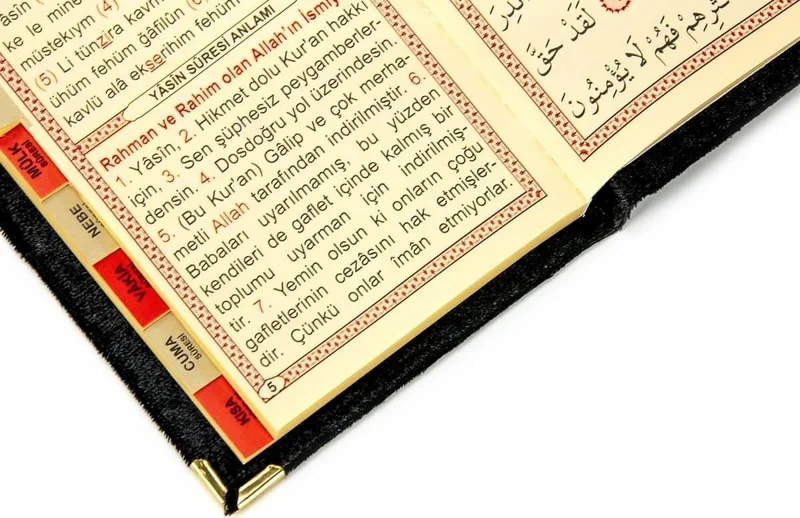 YÂSİN SÛRESİ ANLAMI
Rahman ve Rahim olan Allah'ın İsmiy
1. Yâsîn, 2. Hikmet dolu Kur'an hakkı
için, 3. Sen şüphesiz peygamberler-
densin. 4. Dosdoğru yol üzerindesin.
5. (Bu Kur'an) Gâlip ve çok merha-
metli Allah tarafından indirilmiştir. 6.
Babaları uyarılmamış, bu yüzden
kendileri de gaflet içinde kalmış bir
toplumu uyarman için indirilmiş-
tir. 7. Yemin olsun ki onların çoğu
gafletlerinin cezâsını hak etmişler-
dir. Çünkü onlar îmân etmiyorlar.
5
ke le mine
müstekıym (4)
(5) Li tünzira kavm
ühüm fehüm gâfilûn (6)
kavlü alâ ekserihim fehüm
لَقَدْ حَقَّ
فَهُمْ لَا يُؤْمِنُونَ
MÜLK
SÛRESİ
NEBE
VÂKIA
CUMA
SÛRESİ
KISA